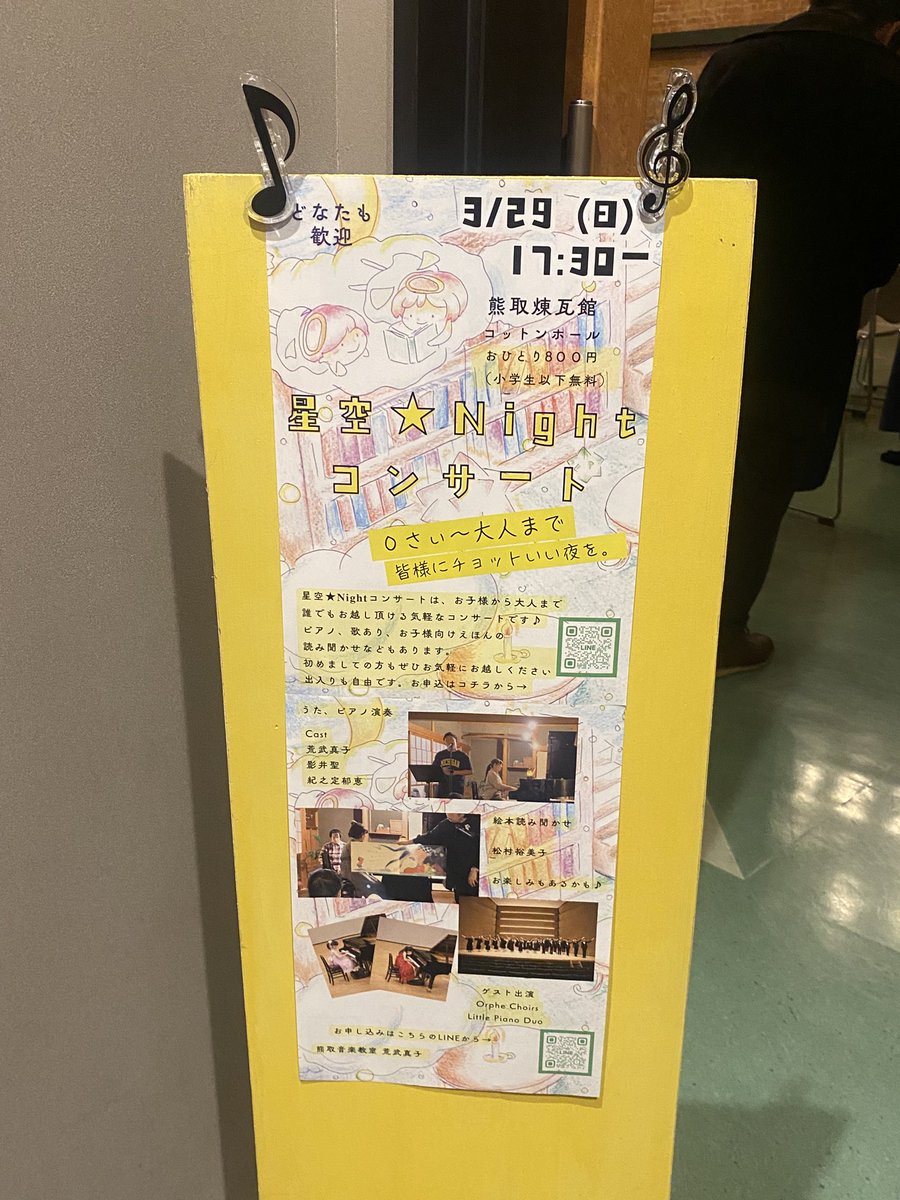 どなたも
歓迎
3/29 (日)
17:30ー
熊取煉瓦館
コットンホール
おひとり800円
(小学生以下無料)
星空★Night
コンサート
0さい〜大人まで
皆様にチョットいい夜を。
星空★Nightコンサートは、お子様から大人まで
誰でもお越し頂ける気軽なコンサートです♪
ピアノ、歌あり、お子様向けえほんの
読み聞かせなどもあります。
初めましての方もぜひお気軽にお越しください
出入りも自由です。お申込はコチラから→
LINE
うた、ピアノ演奏
Cast
荒武真子
影井聖
紀之定郁恵
MICHIGAN
絵本読み聞かせ
松村裕美子
お楽しみもあるかも♪
ゲスト出演
Orphe Choirs
Little Piano Duo
お申し込みはこちらのLINEから→
熊取音楽教室 荒武真子
LINE